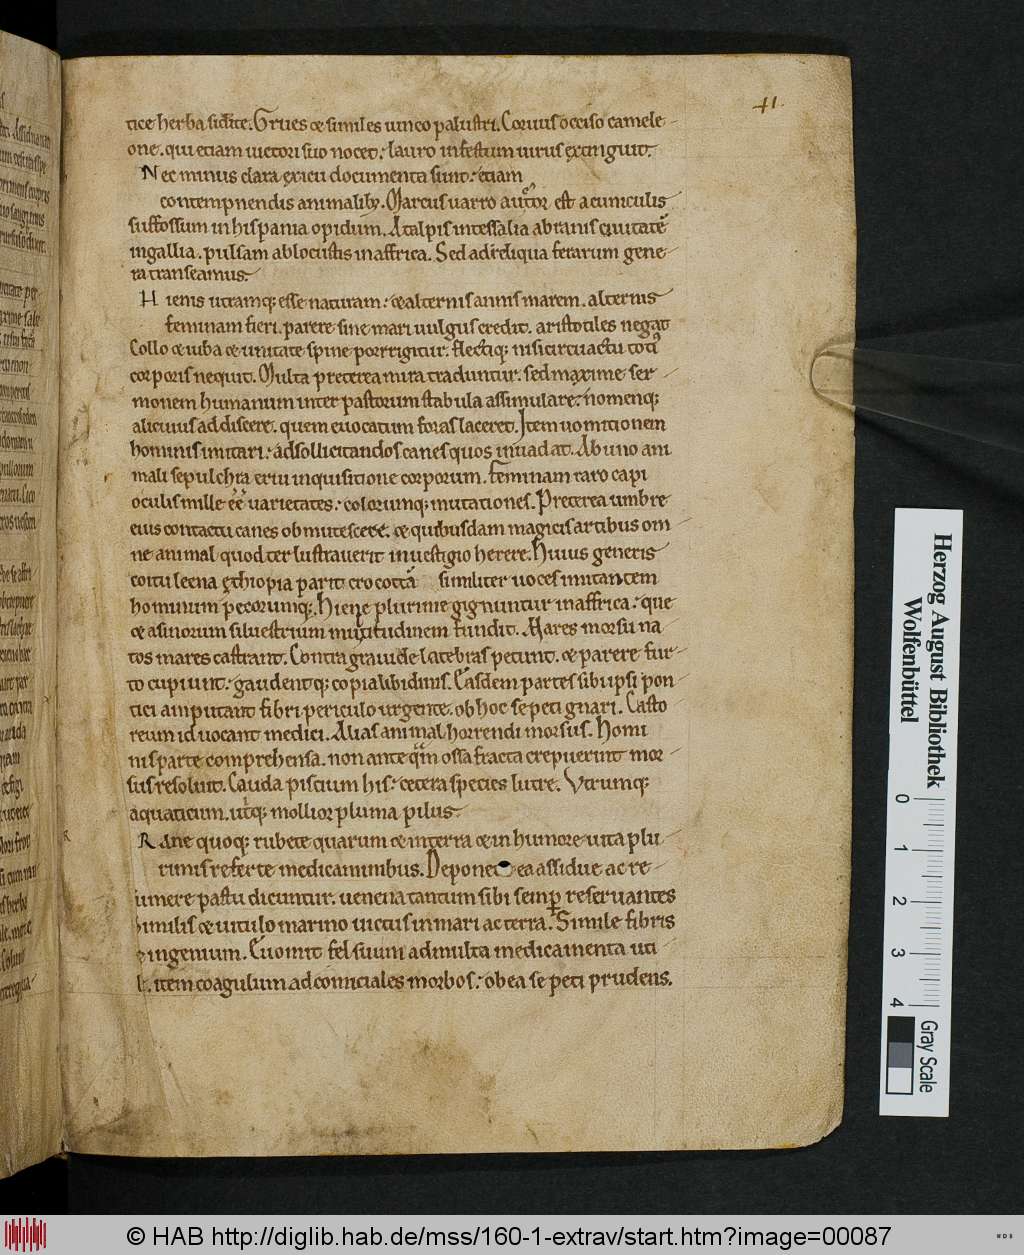 41.
tice herba sidite. Grues & similes iunco palustri. Coruus occiso camele-
one. qui etiam uictori suo nocet: lauro infectum uirus extinguit.
Nec minus clara exitii documenta sunt: etiam
contempnendis animalib; Marcus uarro auctor est a cuniculis
suffossum in hispania opidum. A talpis in tessalia ab ranis ciuitatē
in gallia. pulsam ab locustis in affrica. Sed ad reliqua ferarum gene-
ra transeamus:
Hienis utramq; esse naturam: & alternis annis marem. alternis
feminam fieri. parere sine mari uulgus credit. aristotiles negat
Collo & iuba & unitate spine porrigitur. flectiq; nisi circuactu toti'
corporis nequit. Multa preterea mira traduntur. sed maxime ser-
monem humanum inter pastorum stabula assimulare: nomenq;
alicuius addiscere. quem euocatum foras laceret. Item uomitionem
hominis imitari: ad sollicitandos canes quos inuadat. Ab uno ani
mali sepulchra erui inquisitione corporum. feminam raro capi
oculis mille eē uarietates: colorumq; mutationes. Preterea umbre
eius contactu canes obmutescere. & quibusdam magicis artibus om-
ne animal quod ter lustrauerit in uestigio herere. Huius generis
coitu leena ethiopia parit crocottā similiter uoces imitantem
hominum pecorumq;. Hiene plurime gignuntur in affrica: que
& asinorum siluestrium multitudinem fundit. Mares morsu na-
tos mares castrant. Contra grauide latebras petunt. & parere fur-
to cupiunt: gaudentq; copia libidinis. Easdem partes sibi ipsi pon-
tici amputant fibri periculo urgente. ob hoc se peti gnari. Casto
reum id uocant medici. Alias animal horrendi morsus. Homi
nis parte comprehensa. non ante qm̄ ossa fracta crepuerint mor-
sus resoluit. Cauda piscium his: cetera species lutre. Vtrumq;
aquaticum. utq; mollior pluma pilus.
Rane quoq; rubete quarum & in terra & in humore uita plu-
rimis referte medicaminibus. Deponere ea assidue ac re-
sumere pastu dicuntur. uenena tantum sibi semp reseruantes
similis & uitulo marino uictus in mari ac terra. Simile fibris
& ingenium. Euomit fel suum ad multa medicamenta uti-
le. item coagulum ad comiciales morbos: ob ea se peti prudens.
Herzog August Bibliothek
Wolfenbüttel
0 1 2 3 4
Gray Scale
© HAB http://diglib.hab.de/mss/160-1-extrav/start.htm?image=00087